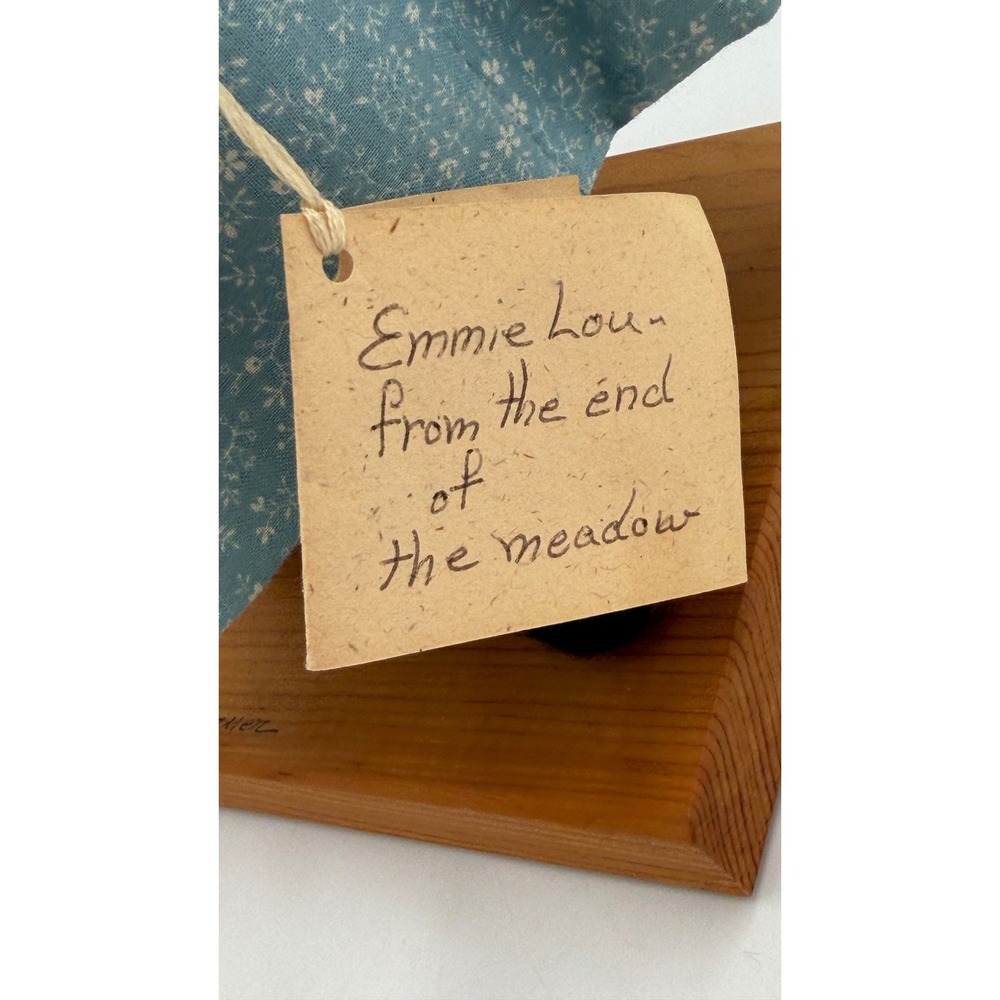 Emmie Lou-
from the end
of
the meadow